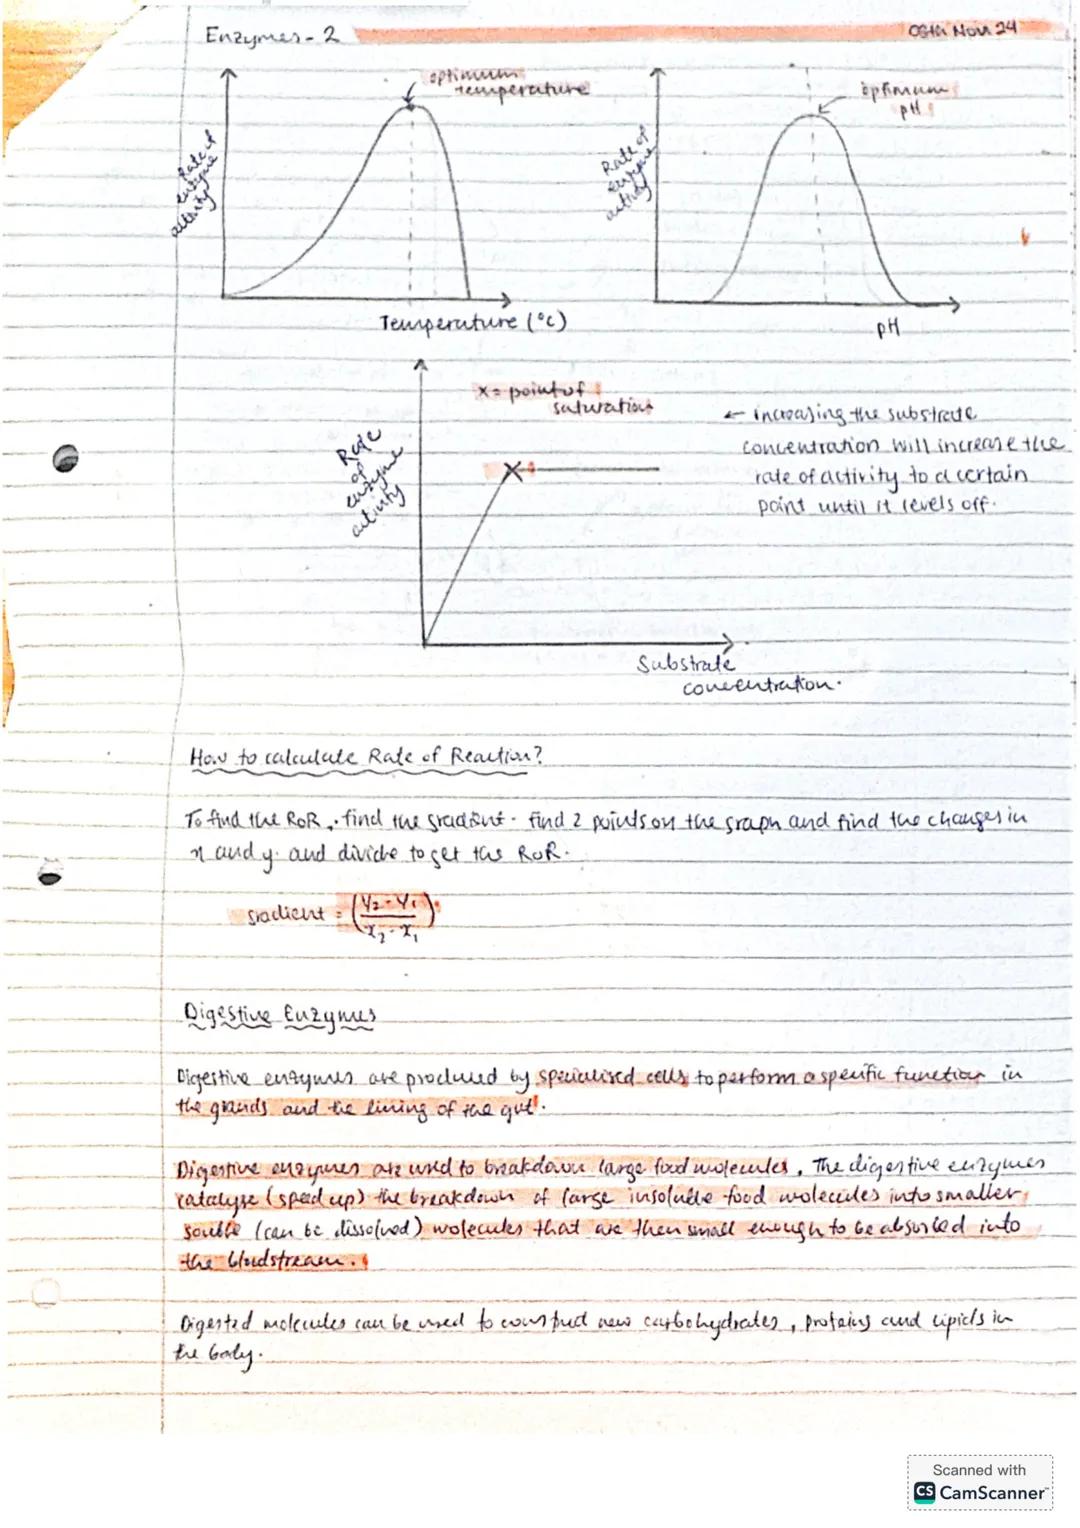 Enzymes - 2
05th Nov 24
optimum
temperature
Rate of
enzyme
activity
Temperature (°C)
optimum
pH
Rate of
enzyme
activity
pH
x = point of
saturation
Rate
of
enzyme
activity
X
Substrate
concentration.
← increasing the substrate
concentration will increase the
rate of activity to a certain
point until it levels off.
How to calculate Rate of Reaction?
To find the RoR, find the gradient. find 2 points on the graph and find the changes in
x and y. and divide to get the RoR.
gradient = (y₂ - y₁ / x₂ - x₁)
Digestive Enzymes
Digestive enzymes are produced by specialised cells to perform a specific function in
the glands and the lining of the gut.
Digestive enzymes are used to breakdown large food molecules, The digestive enzymes
catalyse (speed up) the breakdown of large insoluble food molecules into smaller,
soluble (can be dissolved) molecules that are then small enough to be absorbed into
the bloodstream.
Digested molecules can be used to construct new carbohydrates, proteins and lipids in
the body.
Scanned with
CS CamScanner